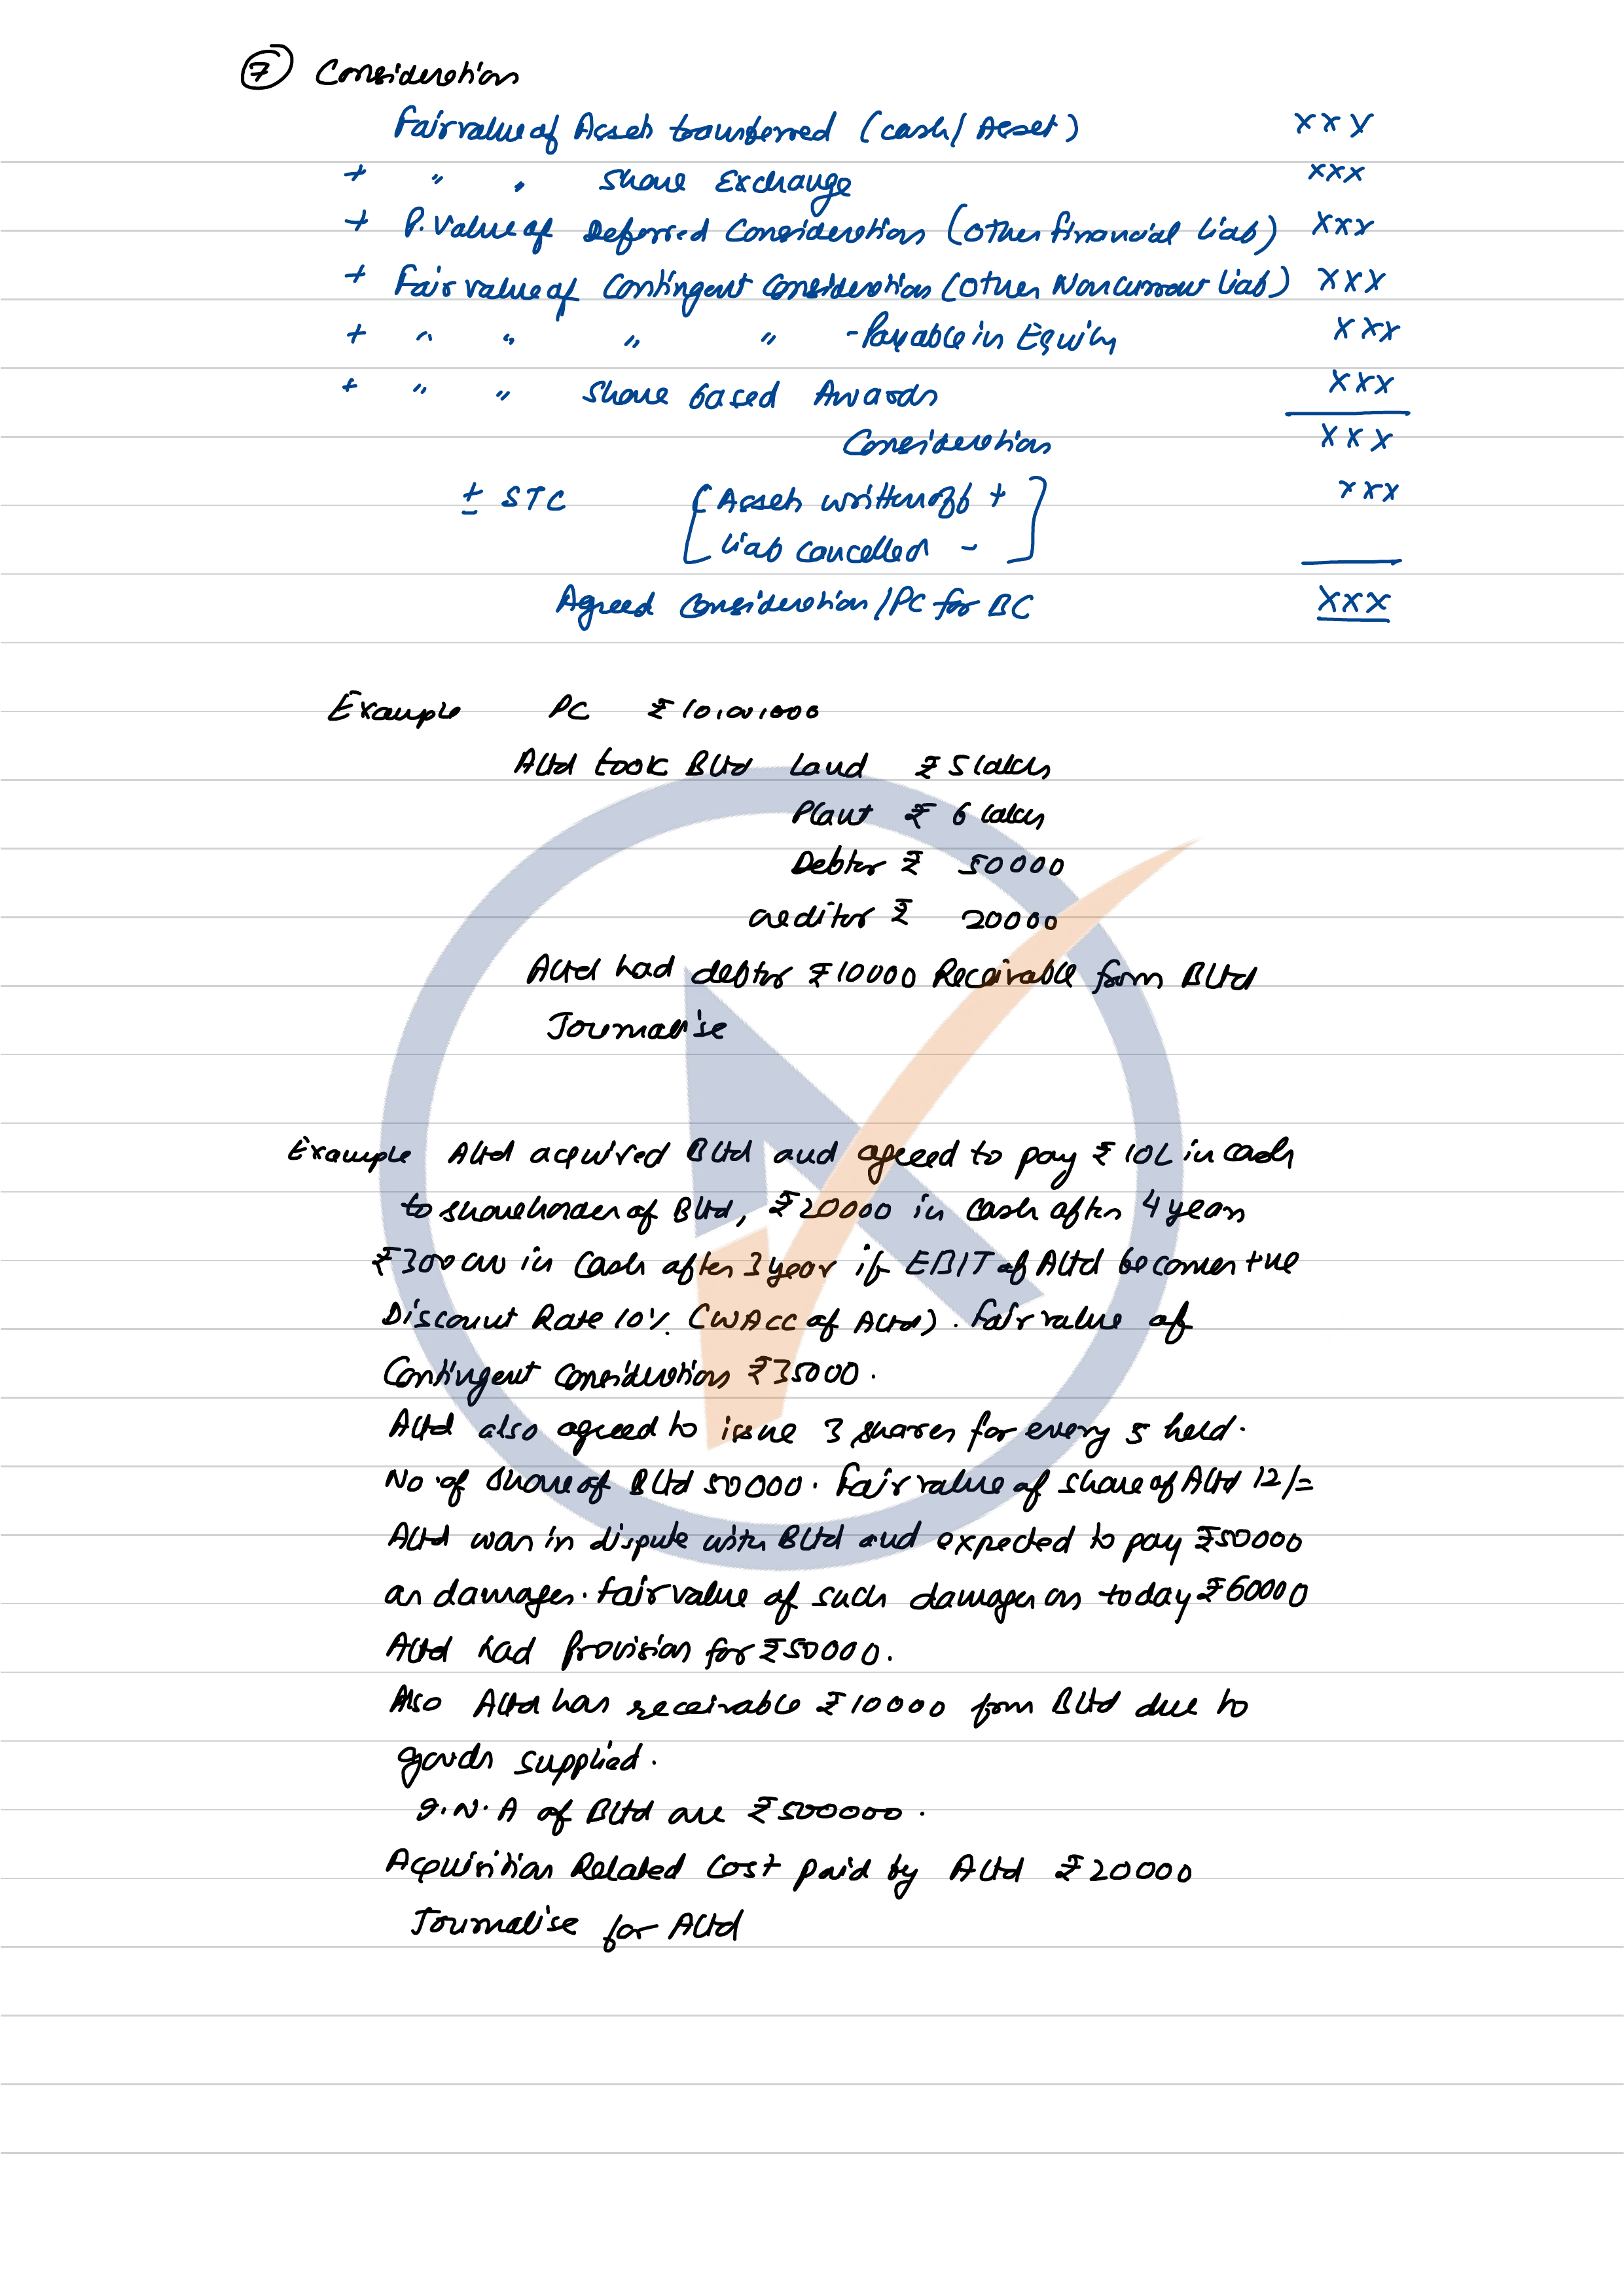 ⑦ Consideration
Fair value of Asset transferred (cash/Asset) xxx
+ " " Share Exchange xxx
+ P. Value of Deferred Consideration (other financial liab) xxx
+ Fair value of Contingent Consideration (other Noncurrent liab) xxx
+ " " " " - Payable in Equity xxx
+ " " Share based Awards xxx
Consideration xxx
± STC [Assets written off + xxx
liab cancelled - ]
Agreed Consideration/PC for BC xxx
Example PC ₹10,00,000
A Ltd took B Ltd Land ₹ 5 lakhs
Plant ₹ 6 lakhs
Debtor ₹ 50000
creditor ₹ 20000
A Ltd had debtor ₹10000 Receivable from B Ltd
Journalise
Example A Ltd acquired B Ltd and agreed to pay ₹10L in cash
to shareholder of B Ltd, ₹20000 in cash after 4 years
₹30000 in cash after 3 year if EBIT of A Ltd becomes +ve
Discount Rate 10% (WACC of A Ltd). Fair value of
Contingent consideration ₹35000.
A Ltd also agreed to issue 3 shares for every 5 held.
No. of share of B Ltd 50000. Fair value of share of A Ltd 12/=
A Ltd was in dispute with B Ltd and expected to pay ₹50000
as damages. Fair value of such damages on today ₹60000
A Ltd had Provision for ₹50000.
Also A Ltd has receivable ₹10000 from B Ltd due to
goods supplied.
I.N.A of B Ltd are ₹500000.
Acquisition Related Cost paid by A Ltd ₹20000
Journalise for A Ltd